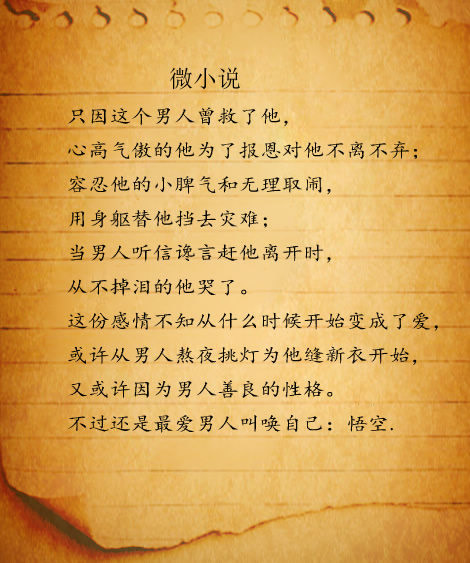 微小说
只因这个男人曾救了他，
心高气傲的他为了报恩对他不离不弃；
容忍他的小脾气和无理取闹，
用身躯替他挡去灾难；
当男人听信谗言赶他离开时，
从不掉泪的他哭了。
这份感情不知从什么时候开始变成了爱，
或许从男人熬夜挑灯为他缝新衣开始，
又或许因为男人善良的性格。
不过还是最爱男人叫唤自己：悟空.